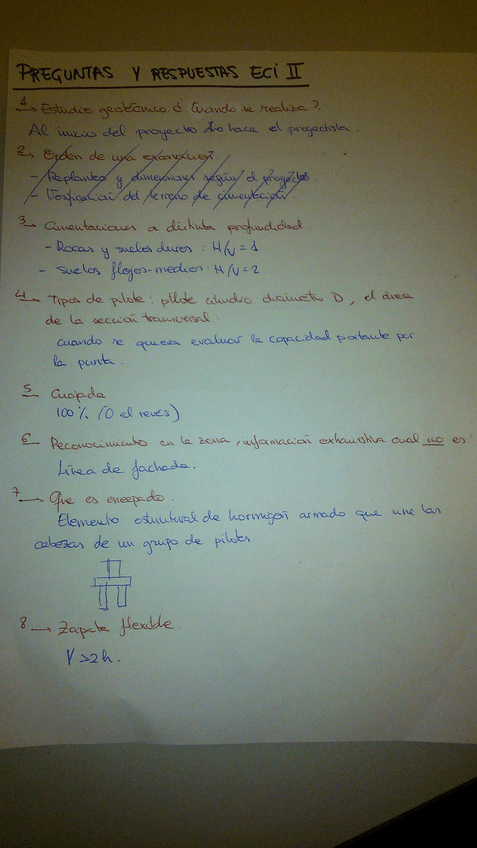 PREGUNTAS Y RESPUESTAS ECI II
1→ Estudio geotécnico ¿Cuando se realiza?.
Al inicio del proyecto lo hace el proyectista
2→ Orden de una excavación.
- Replanteo y dimensiones según el proyecto.
- Verificación del terreno de cimentación.
3→ Cimentaciones a distinta profundidad.
- Rocas y suelos duros: H/V = 1
- Suelos flojos-medios: H/V = 2
4→ Tipos de pilote: pilote cilindro diametro D, el área
de la sección transversal.
cuando se quiera evaluar la capacidad portante por
la punta.
5→
100% (O al reves)
6→ Reconocimiento en la zona, información exhaustiva cual no es:
Línea de fachada.
7→ Que es encepado.
Elemento estructural de hormigón armado que une las
cabezas de un grupo de pilotes
8→ Zapata flexible.
V>2h.